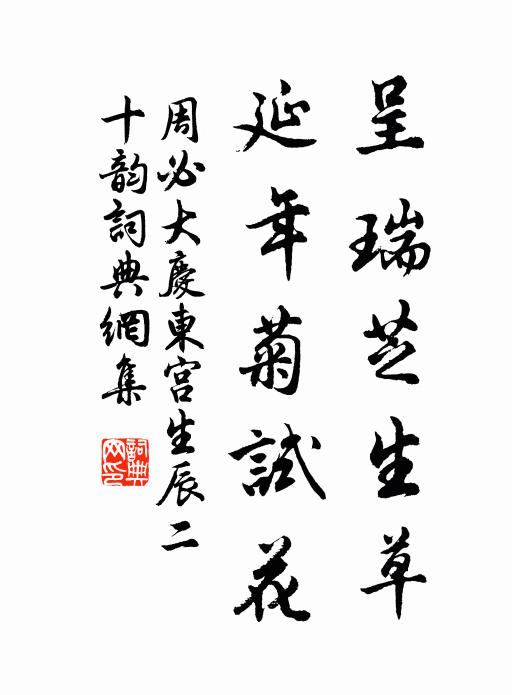 呈瑞芝生草
延年菊試花
周必大慶東宫生辰二
十韵詞典網集
詞典
网印